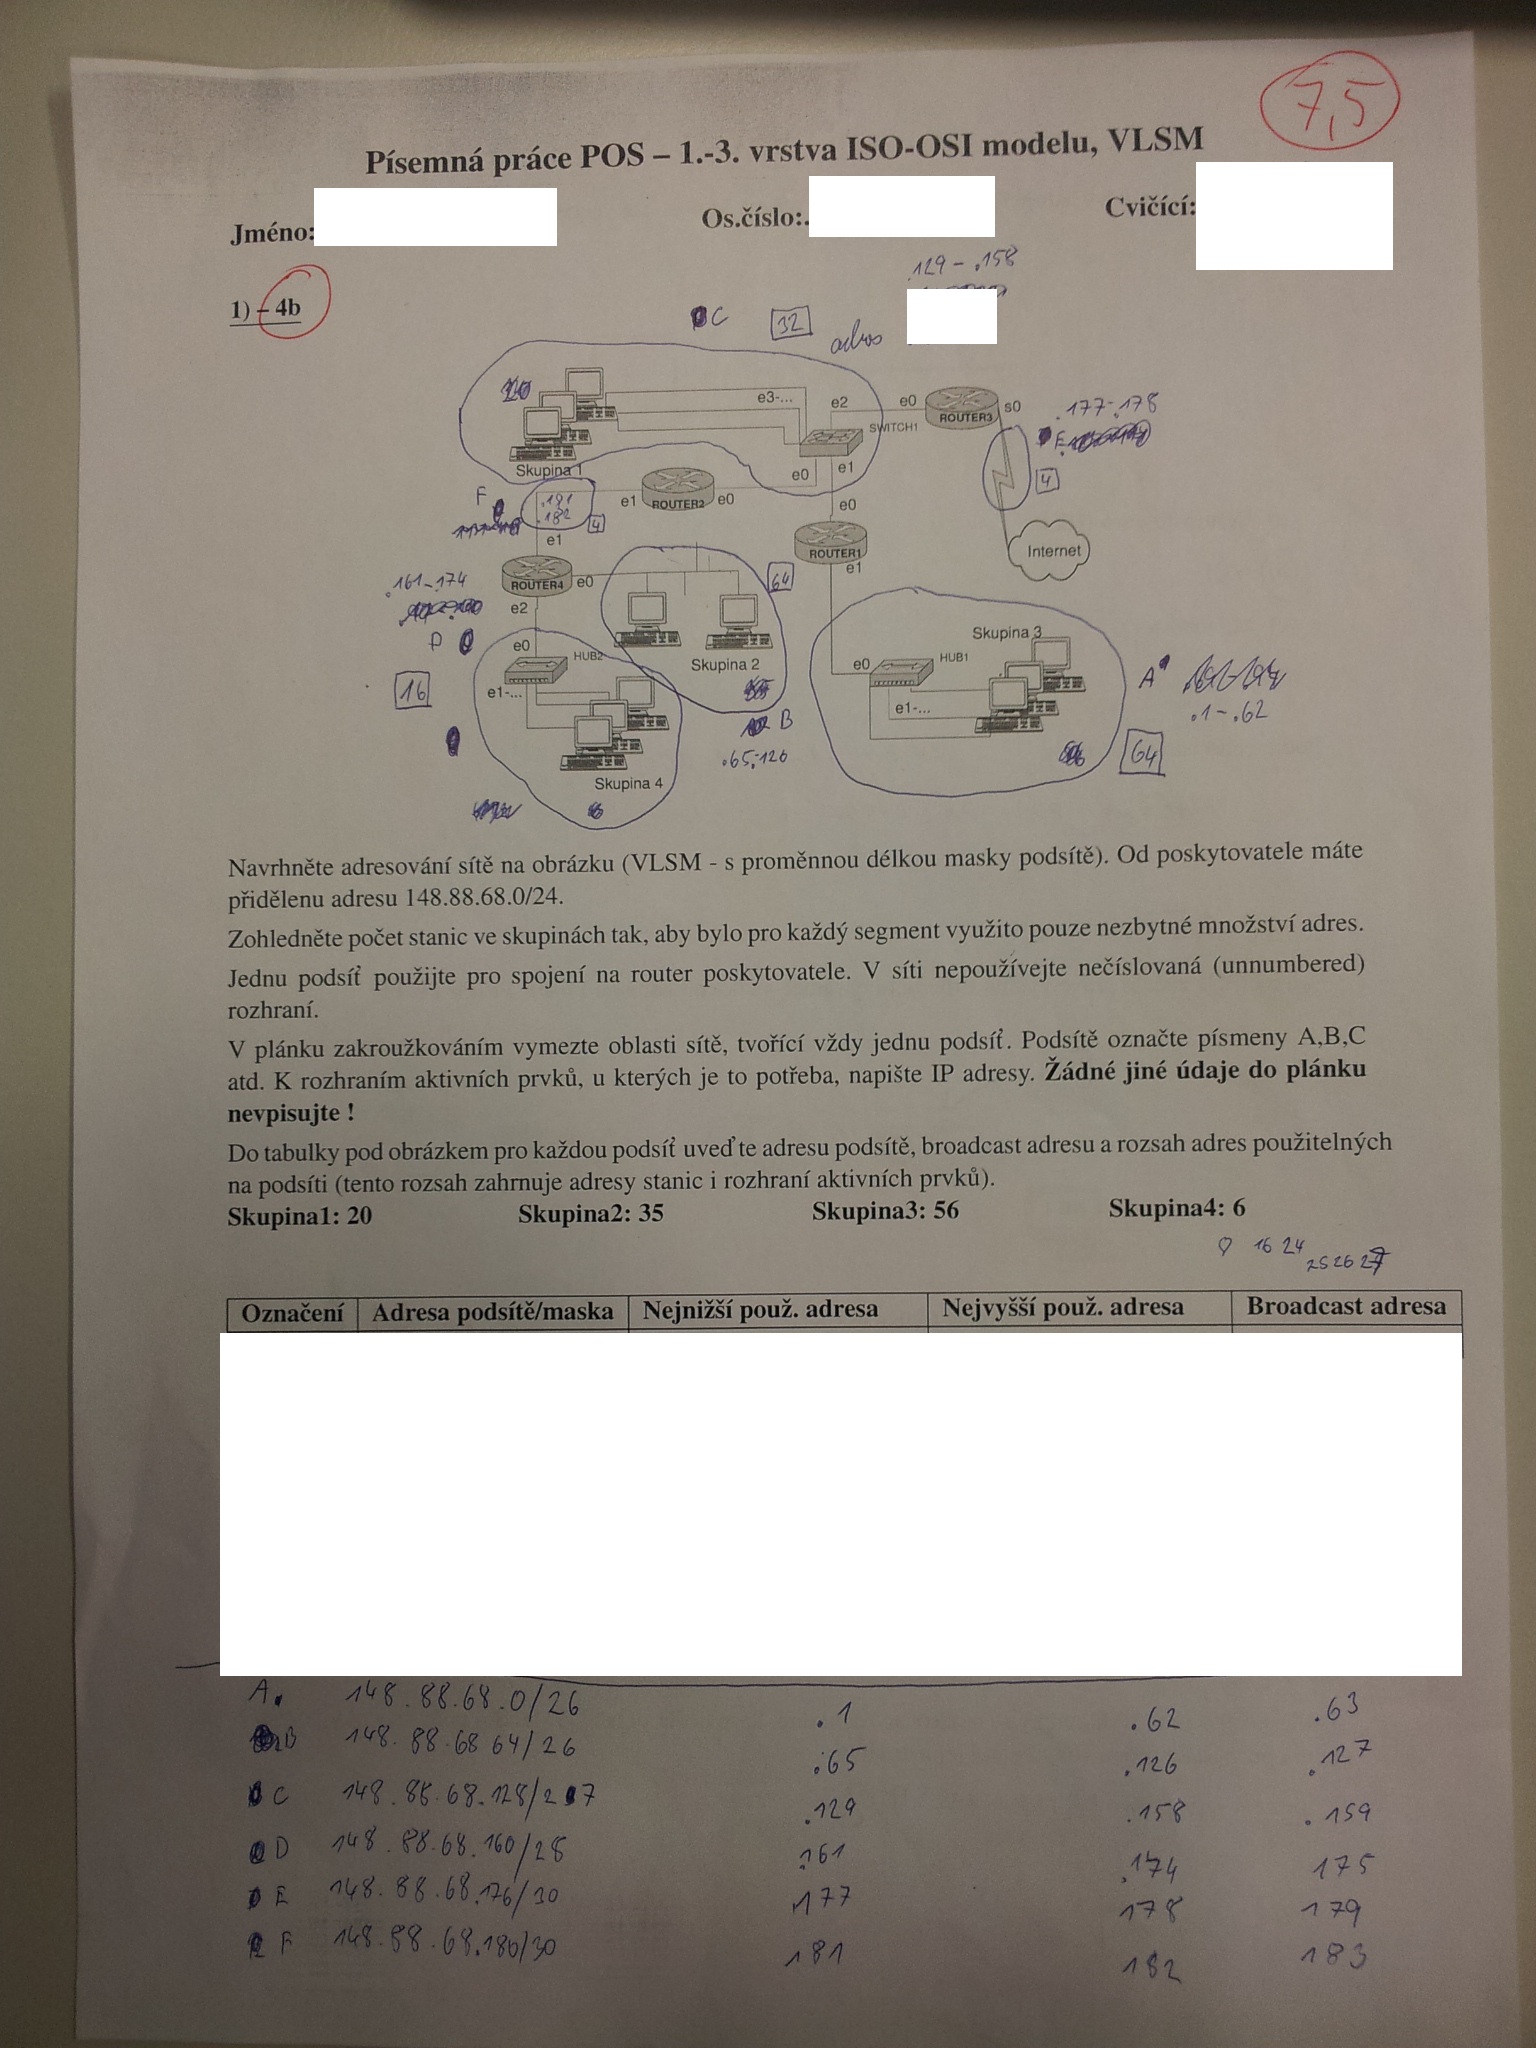 7,5
Písemná práce POS – 1.-3. vrstva ISO-OSI modelu, VLSM
Jméno:
Os.číslo:.
Cvičící:
.129 - .158
1) – 4b
C
32
e3-...
e2
e0
ROUTER3
s0
.177-.178
SWITCH1
E
Skupina 1
e0
e1
4
F
.181
.182
4
e1
ROUTER2
e0
e0
e1
ROUTER1
e1
Internet
.161-.174
ROUTER4
e0
64
e2
D
e0
HUB2
Skupina 2
Skupina 3
e0
HUB1
16
e1-...
e1-...
A
.1-.62
B
.65-126
64
Skupina 4
Navrhněte adresování sítě na obrázku (VLSM - s proměnnou délkou masky podsítě). Od poskytovatele máte
přidělenu adresu 148.88.68.0/24.
Zohledněte počet stanic ve skupinách tak, aby bylo pro každý segment využito pouze nezbytné množství adres.
Jednu podsíť použijte pro spojení na router poskytovatele. V síti nepoužívejte nečíslovaná (unnumbered)
rozhraní.
V plánku zakroužkováním vymezte oblasti sítě, tvořící vždy jednu podsíť. Podsítě označte písmeny A,B,C
atd. K rozhraním aktivních prvků, u kterých je to potřeba, napište IP adresy. Žádné jiné údaje do plánku
nevpisujte !
Do tabulky pod obrázkem pro každou podsíť uveďte adresu podsítě, broadcast adresu a rozsah adres použitelných
na podsíti (tento rozsah zahrnuje adresy stanic i rozhraní aktivních prvků).
Skupina1: 20 Skupina2: 35 Skupina3: 56 Skupina4: 6
16 24 25 26 27
Označení Adresa podsítě/maska Nejnižší použ. adresa Nejvyšší použ. adresa Broadcast adresa
A. 148.88.68.0/26 .1 .62 .63
B 148.88.68 64/26 .65 .126 .127
C 148.88.68.128/27 .129 .158 .159
D 148.88.68.160/28 .161 .174 175
E 148.88.68.176/30 177 178 179
F 148.88.68.180/30 181 182 183